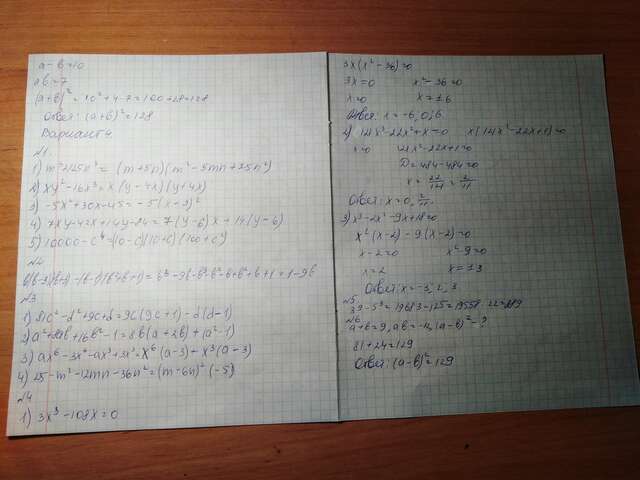 a-b=10
ab=7
(a+b)²=10²+4·7=100+28=128
Ответ: (a+b)²=128
Вариант 4
№1.
1) m³+125n³=(m+5n)(m²-5mn+25n²)
2) xy²-16x³=x(y-4x)(y+4x)
3) -5x²+30x-45=-5(x-3)²
4) 7xy-42x+14y-84=7(y-6)x+14(y-6)
5) 10000-c⁴=(10-c)(10+c)(100+c²)
№2
№3
1) 81c²-d²+9c+d=9c(9c+1)-d(d-1)
2) a²+8ab+16b²-1=8b(a+2b)+(a²-1)
3) ax⁶-3x⁶-ax³+3x³=x⁶(a-3)-x³(a-3)
4) 25-m²-12mn-36n²=(m-6n)²(-5)
№4
1) 3x³-108x=0
3x(x²-36)=0
3x=0 x²-36=0
x=0 x=±6
Ответ: x=-6,0;6
2) 121x³-22x²+x=0 x(121x²-22x+1)=0
x=0 121x²-22x+1=0
D=484-484=0
x=22/121=2/11
Ответ: x=0,2/11
3) x³-2x²-9x+18=0
x²(x-2)-9(x-2)=0
x-2=0 x²-9=0
x=2 x=±3
Ответ: x=-3,2,3
№5
3⁹-5³=19683-125=19558
№6
a+b=9, ab=-12, (a-b)²-?
81+24=129
Ответ: (a-b)²=129